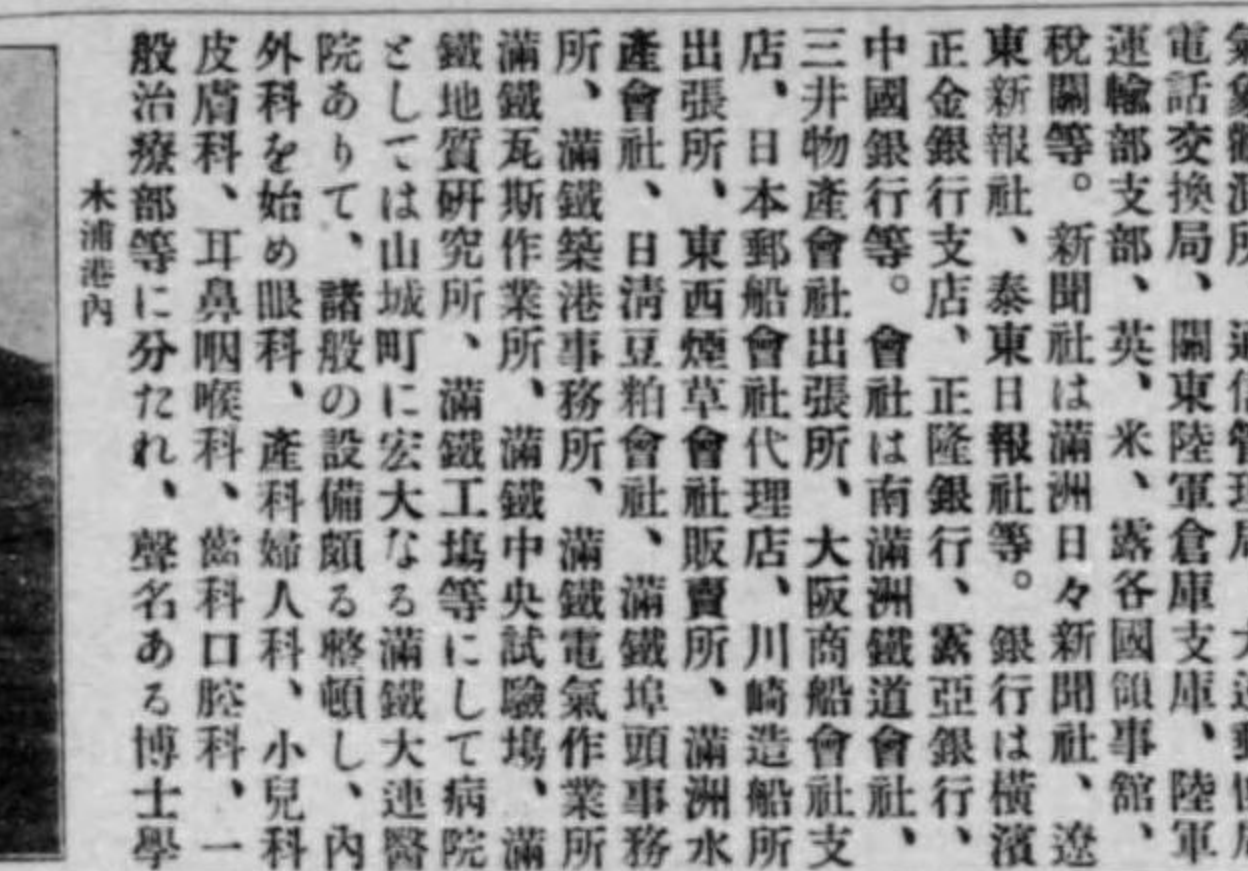 電話交換局、關東陸軍倉庫支庫、陸軍
運輸部支部、英、米、露各國領事舘、
稅關等。新聞社は滿洲日々新聞社、遼
東新報社、泰東日報社等。銀行は橫濱
正金銀行支店、正隆銀行、露亞銀行、
中國銀行等。會社は南滿洲鐵道會社、
三井物產會社出張所、大阪商船會社支
店、日本郵船會社代理店、川崎造船所
出張所、東西煙草會社販賣所、滿洲水
產會社、日淸豆粕會社、滿鐵埠頭事務
所、滿鐵築港事務所、滿鐵電氣作業所
滿鐵瓦斯作業所、滿鐵中央試驗塲、滿
鐵地質硏究所、滿鐵工塲等にして病院
としては山城町に宏大なる滿鐵大連醫
院ありて、諸般の設備頗る整頓し、內
外科を始め眼科、產科婦人科、小兒科
皮膚科、耳鼻咽喉科、齒科口腔科、一
般治療部等に分たれ、聲名ある博士學
木浦港內